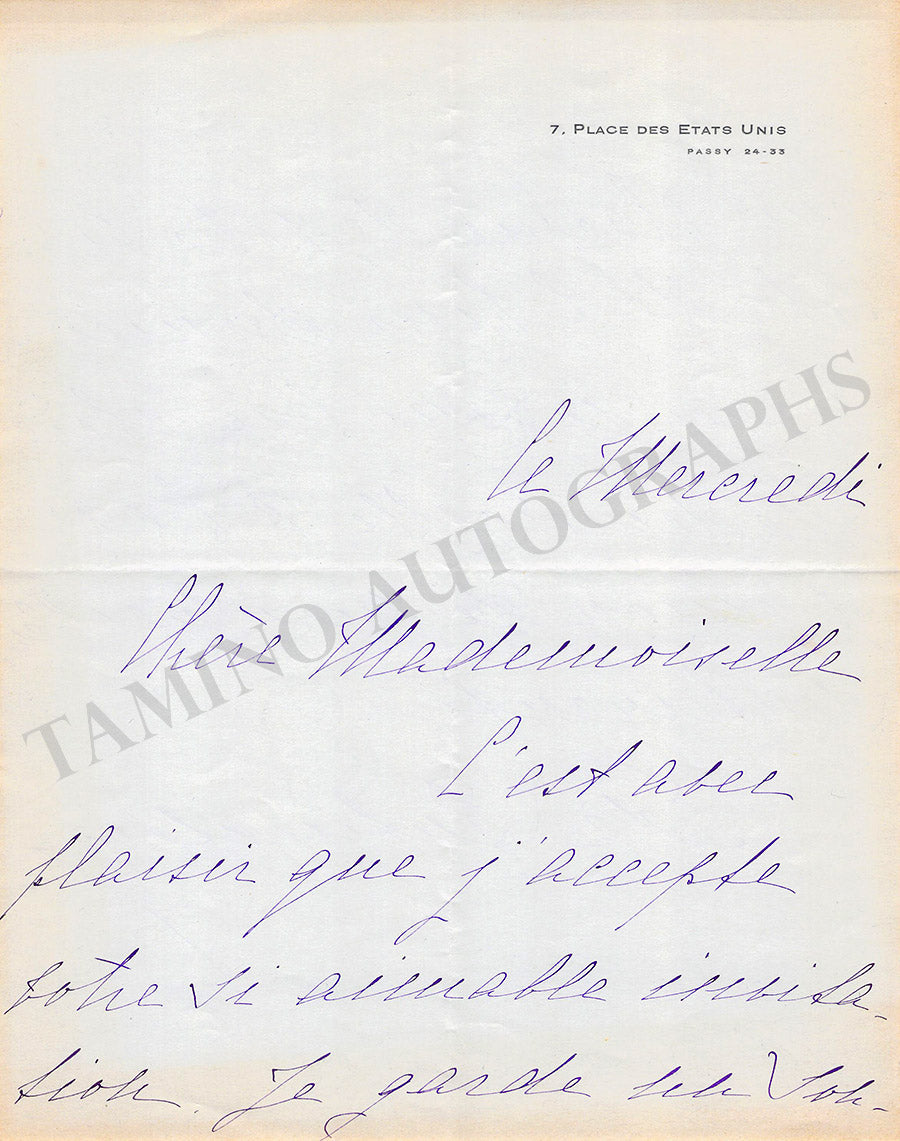 7, PLACE DES ETATS UNIS
PASSY 24-33
Le Mercredi
Chère Mademoiselle
C'est avec
plaisir que j'accepte
votre si aimable invita-
tion. Je garde un sou-
TAMINO AUTOGRAPHS